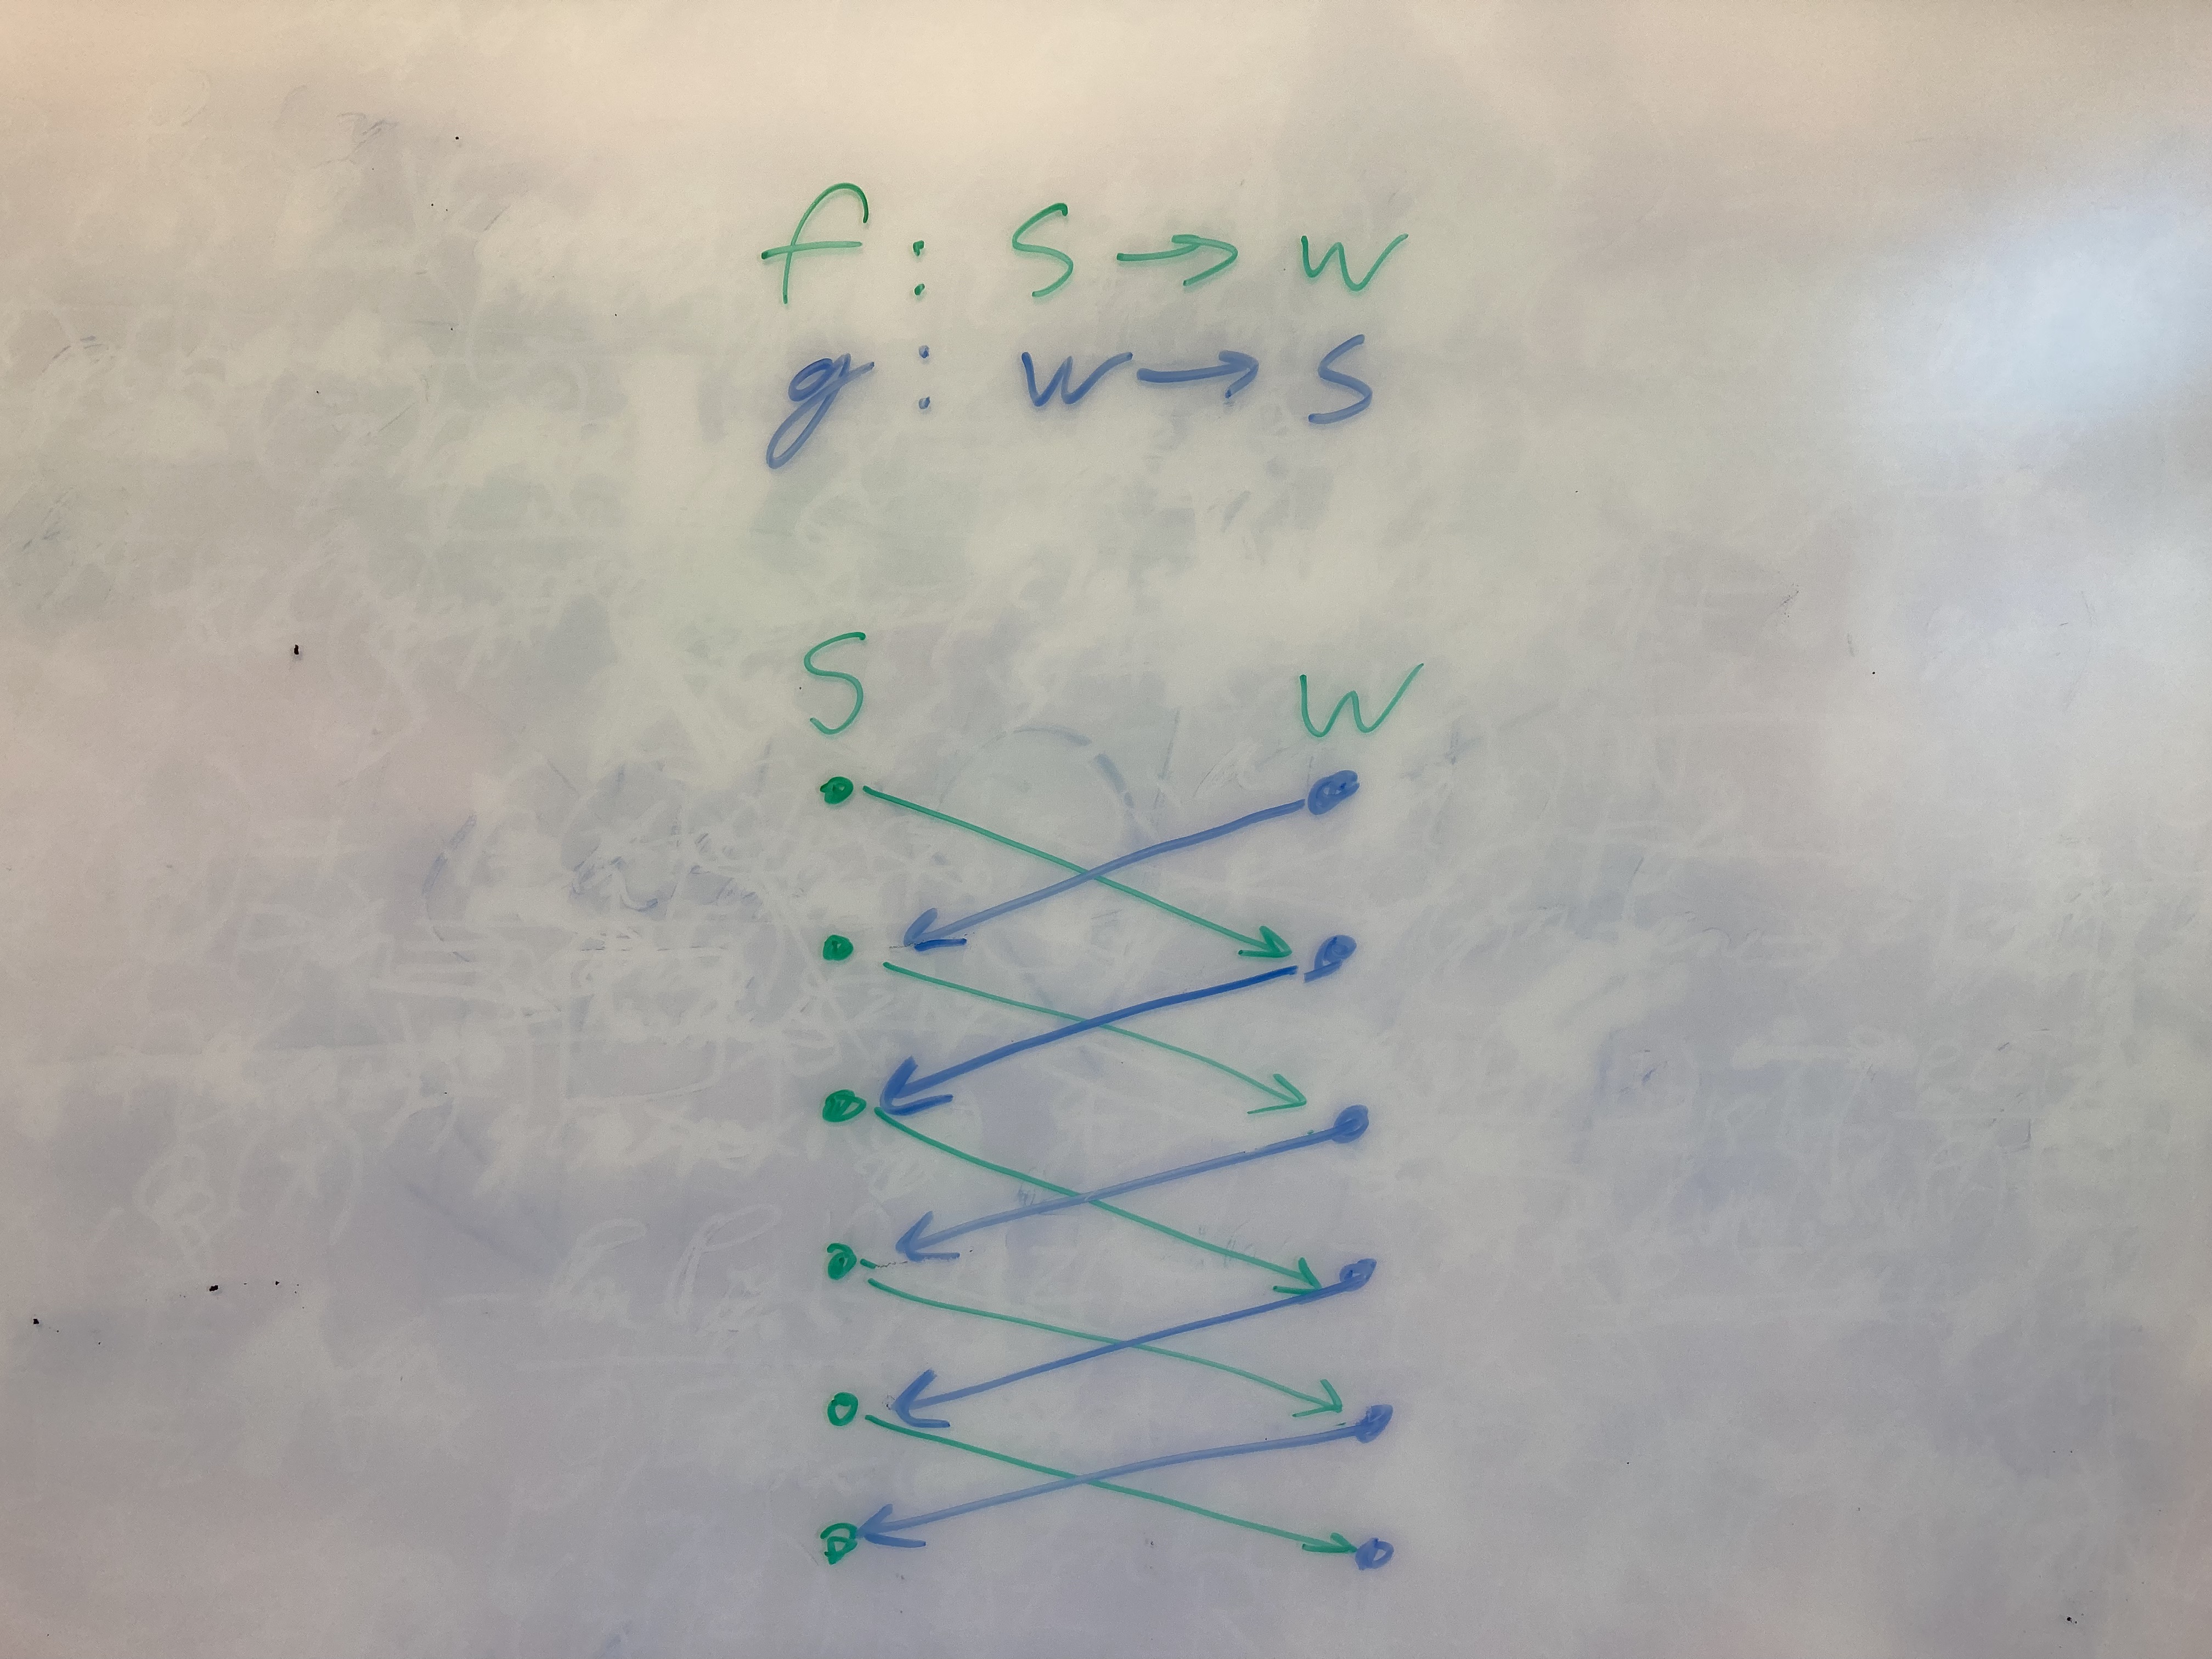 f : S → W
g : W → S
S W